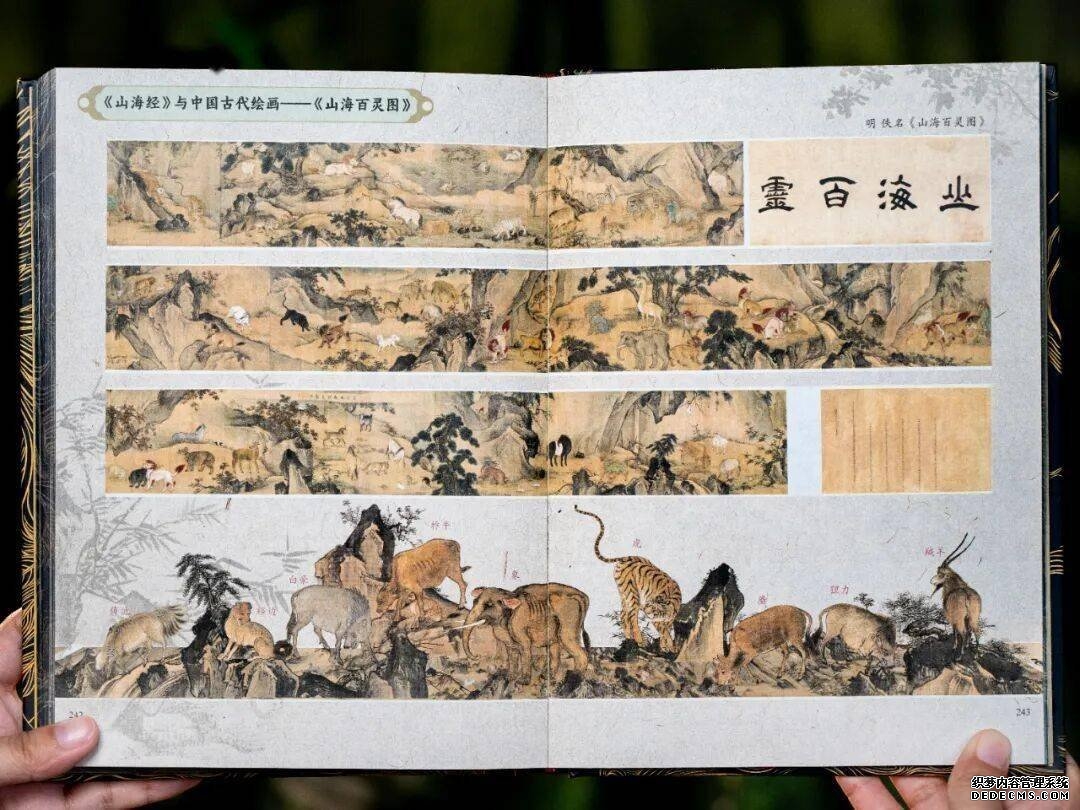 《山海经》与中国古代绘画——《山海百灵图》
明 佚名《山海百灵图》
山海百靈
柞牛
白豪
谿边
象
虎
狙力
羬羊
242
243
织梦内容管理系统
DEDECMS.COM